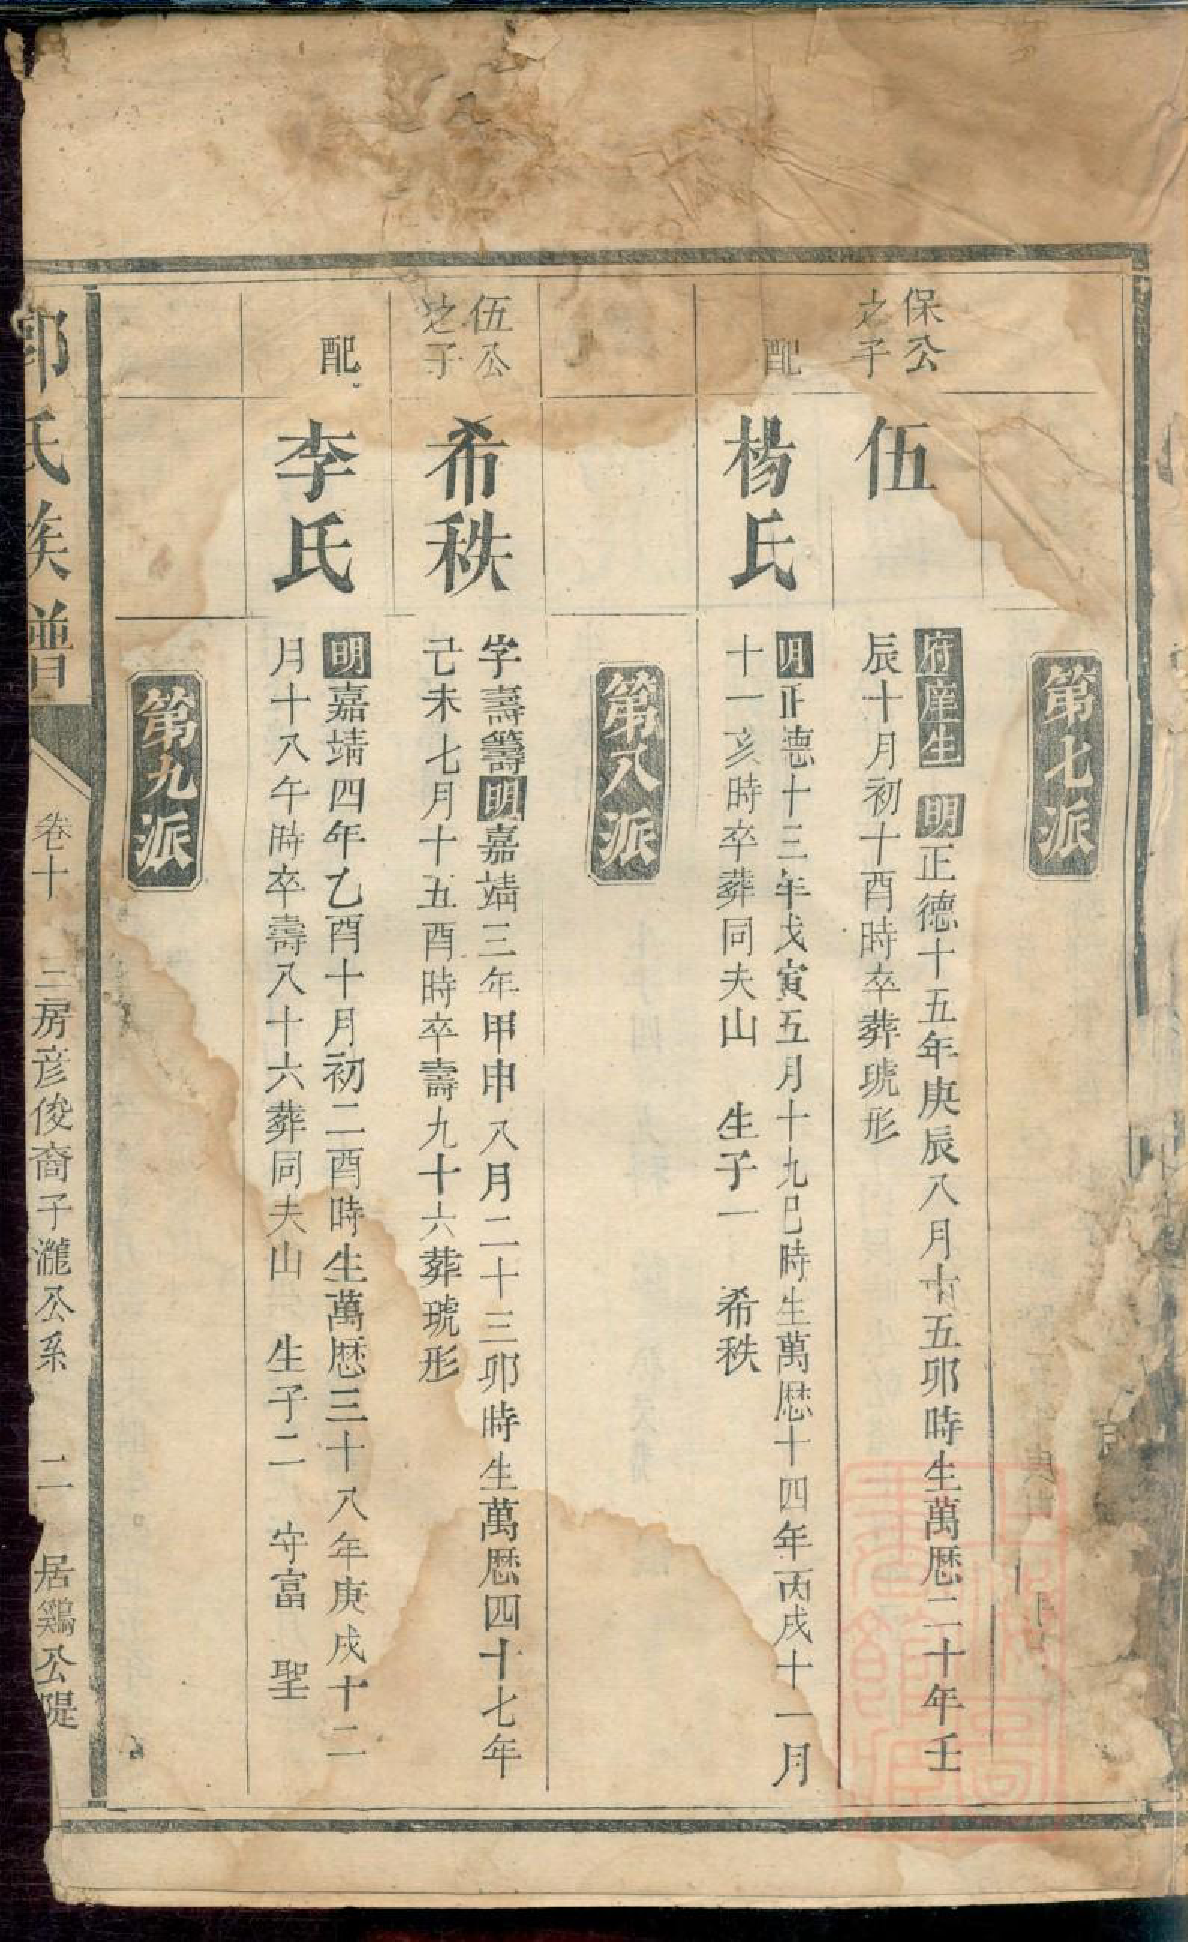 第七派
保公
之子
伍
府庠生 明正德十五年庚辰八月十五卯時生萬厯二十年壬
辰十月初十酉時卒葬琥形
配
楊氏
明正德十三年戊寅五月十九巳時生萬厯十四年丙戌十一月
十一亥時卒葬同夫山 生子一 希秩
第八派
伍公
之子
希秩
字壽籌明嘉靖三年甲申八月二十三卯時生萬厯四十七年
己未七月十五酉時卒壽九十六葬琥形
配
李氏
明嘉靖四年乙酉十月初二酉時生萬厯三十八年庚戌十二
月十八午時卒壽八十六葬同夫山 生子二 守富 聖
第九派
氏族譜 卷十 三房彦俊裔子瀧公系 二 居鷄公隄